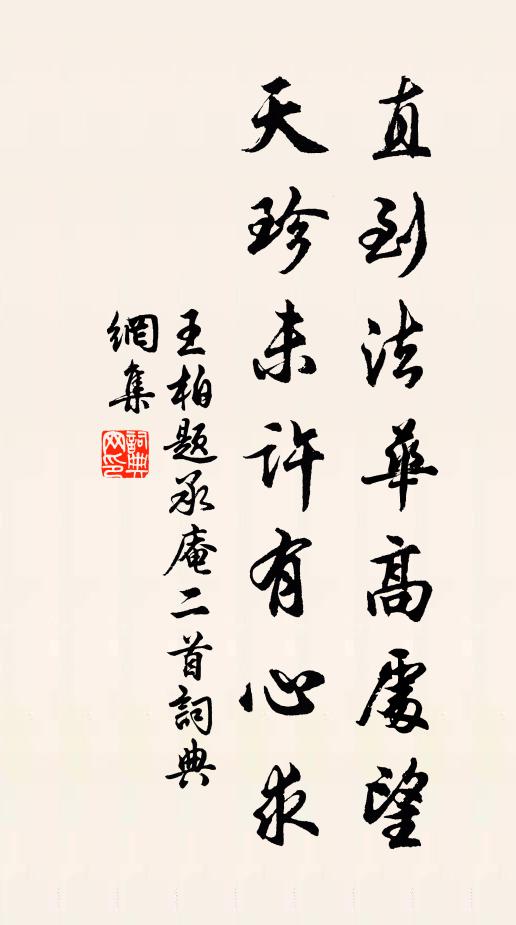 直到法華高處望
天珍未許有心求
王柏題承庵二首詞典
網集
詞典
网印